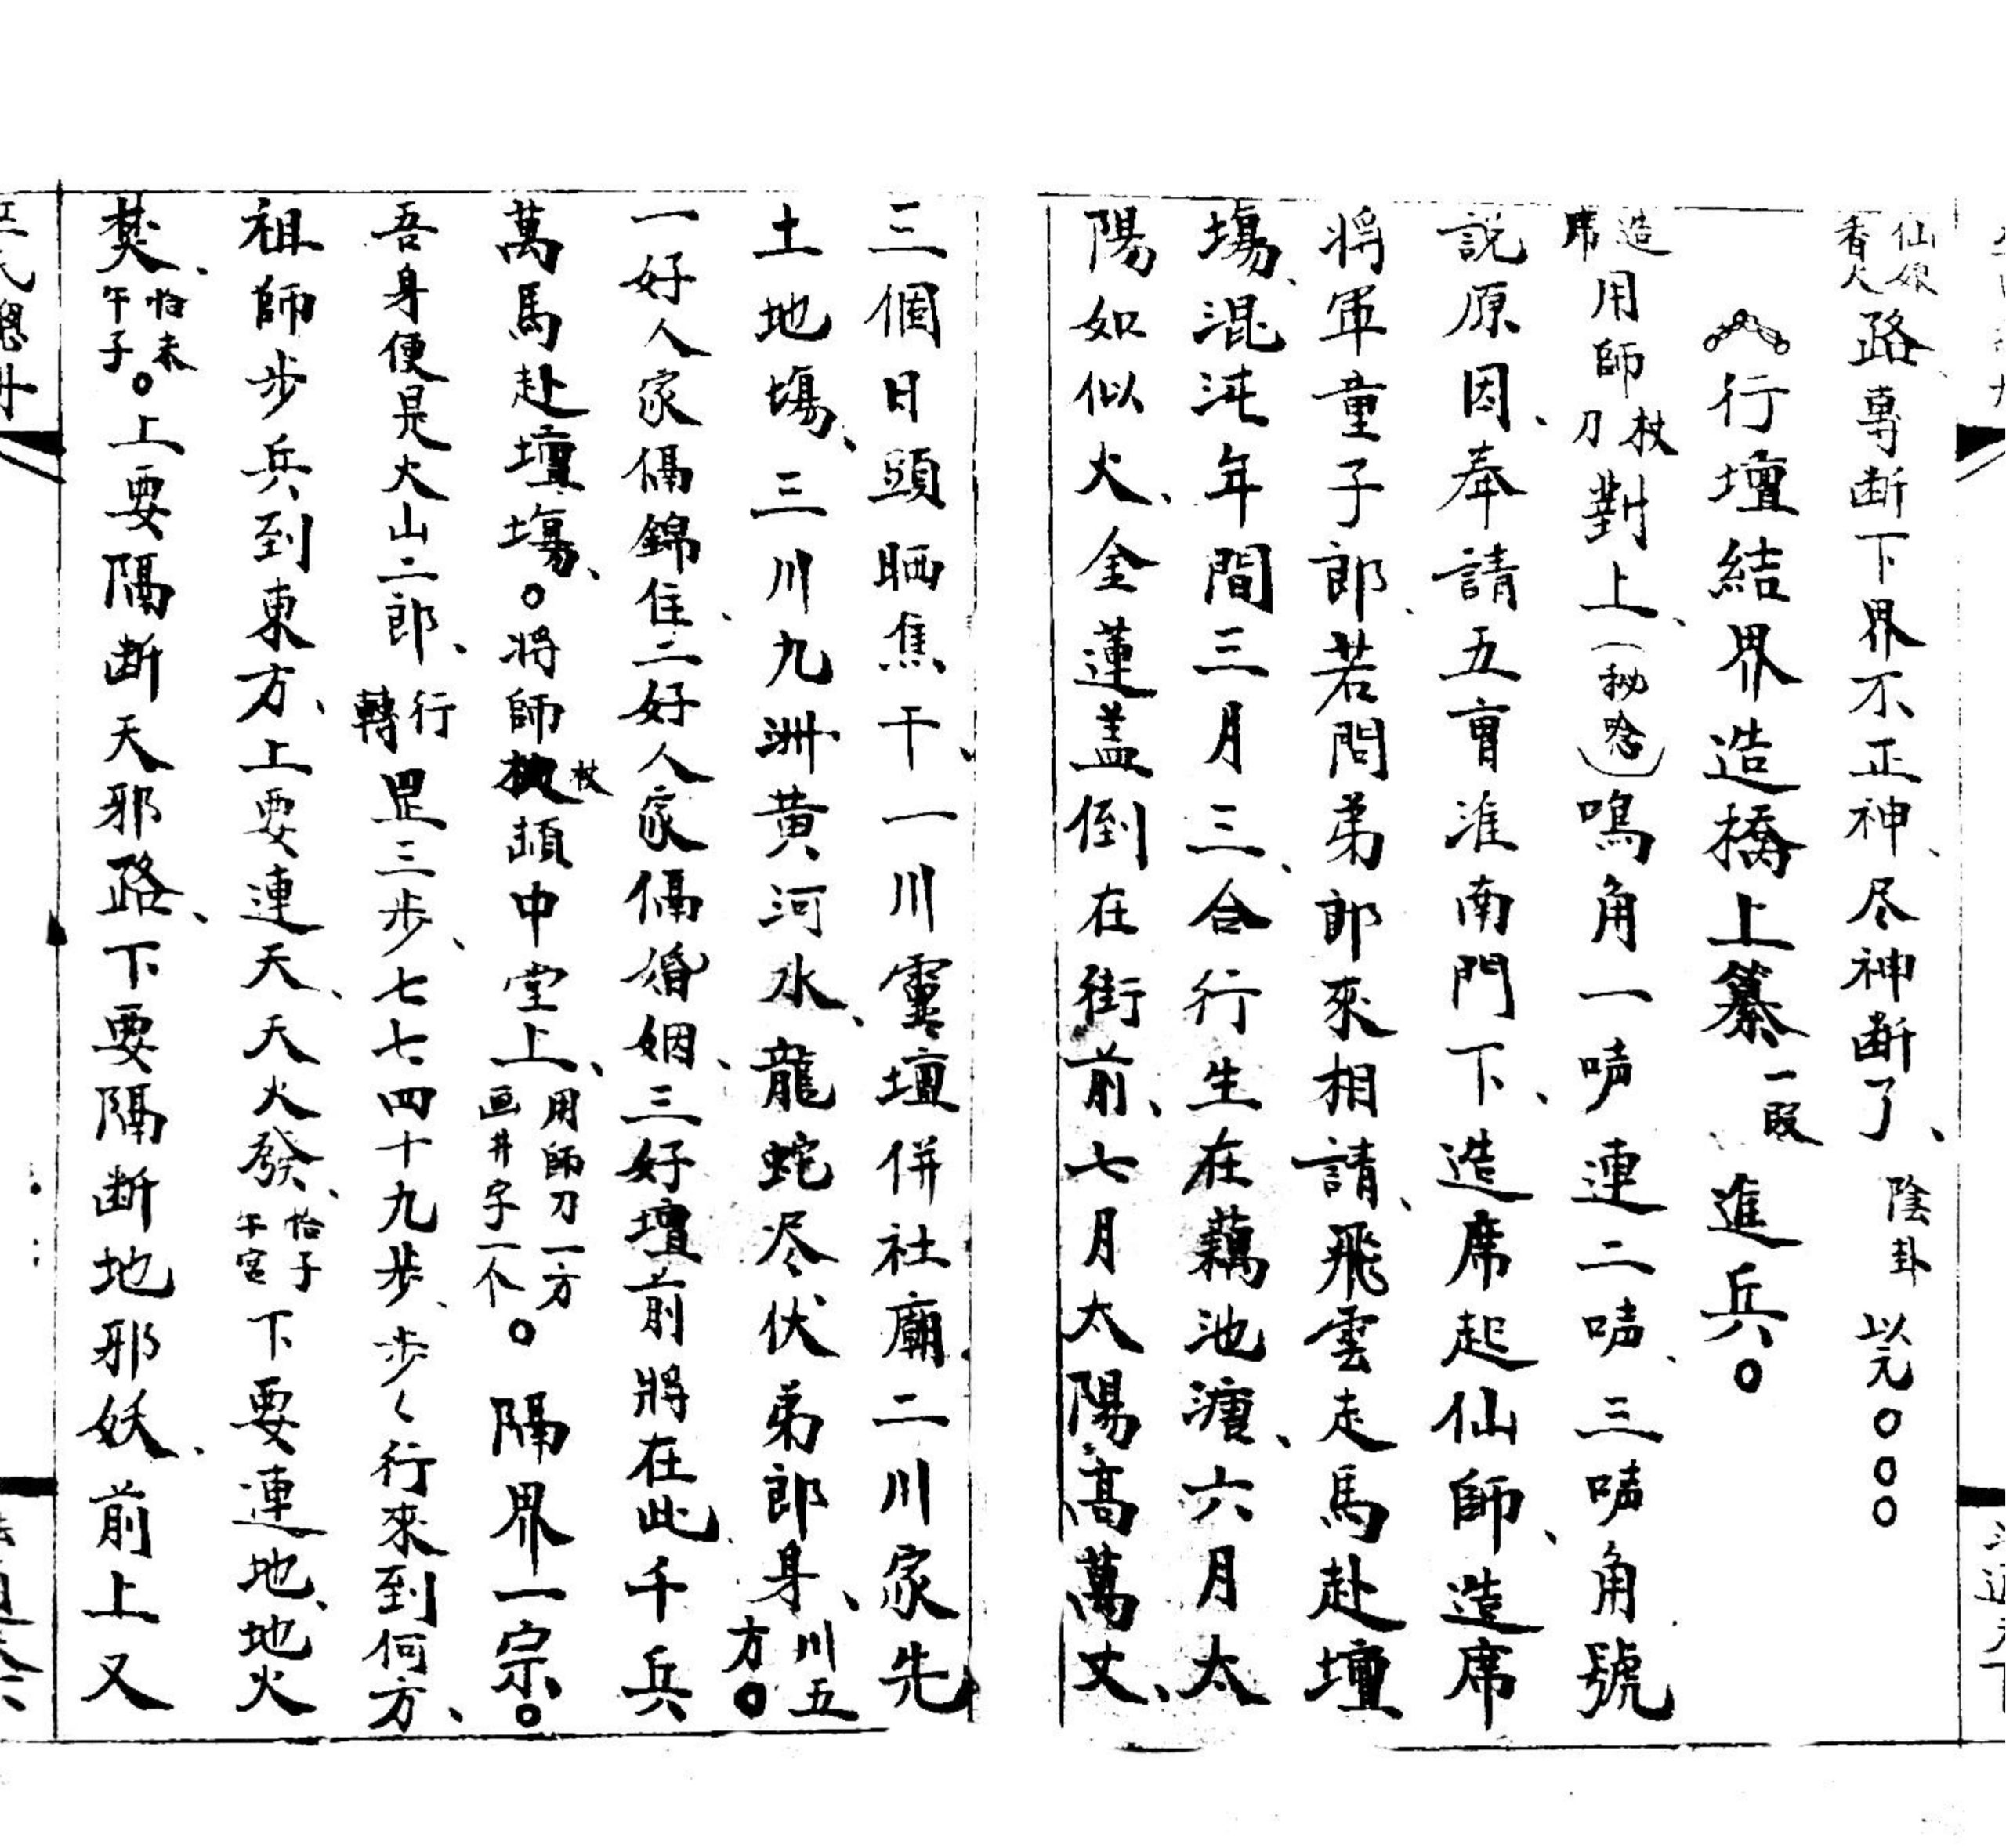 仙娘香火路、專断下界不正神、尽神断了、陰卦 以完○○○
行壇結界造橋上纂、一段 進兵○
造席用師杖刀對上、(秘唸)鳴角一唭連二唭、三唭角號
説原因、奉請五曺淮南門下、造席起仙師、造席
将軍童子郎、若問弟郎來相請、飛雲走馬赴壇
塲、混沌年間三月三、合行生在藕池溏、六月太
陽如似火、金蓮盖倒在街前、七月太陽高萬丈、
三個日頭晒焦干、一川靈壇併社廟、二川家先
土地塲、三川九洲黄河水、龍蛇尽伏弟郎身、川五方○
一好人家偊錦住、二好人家偊婚姻、三好壇前將在此、千兵
萬馬赴壇塲、○将師杖頭中堂上、用師刀一方画井字一个○ 隔界一宗○
吾身便是火山二郎、行轉罡三步、七七四十九步、步々行來到何方、
祖師步兵到東方、上要連天、天火發、恰子午宮下要連地、地火
焚、恰未午子○上要隔断天邪路、下要隔断地邪妖、前上又